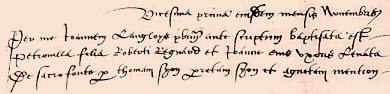 Vicesima prima eiusdem mensis Nouembris
Per me Joannem Langloys pbrm ante scriptum baptisata est
Petronella filia Roberti Regnaud et Joanne eius uxoris Leuata
De sacro fonte p thomam et agnetem mention